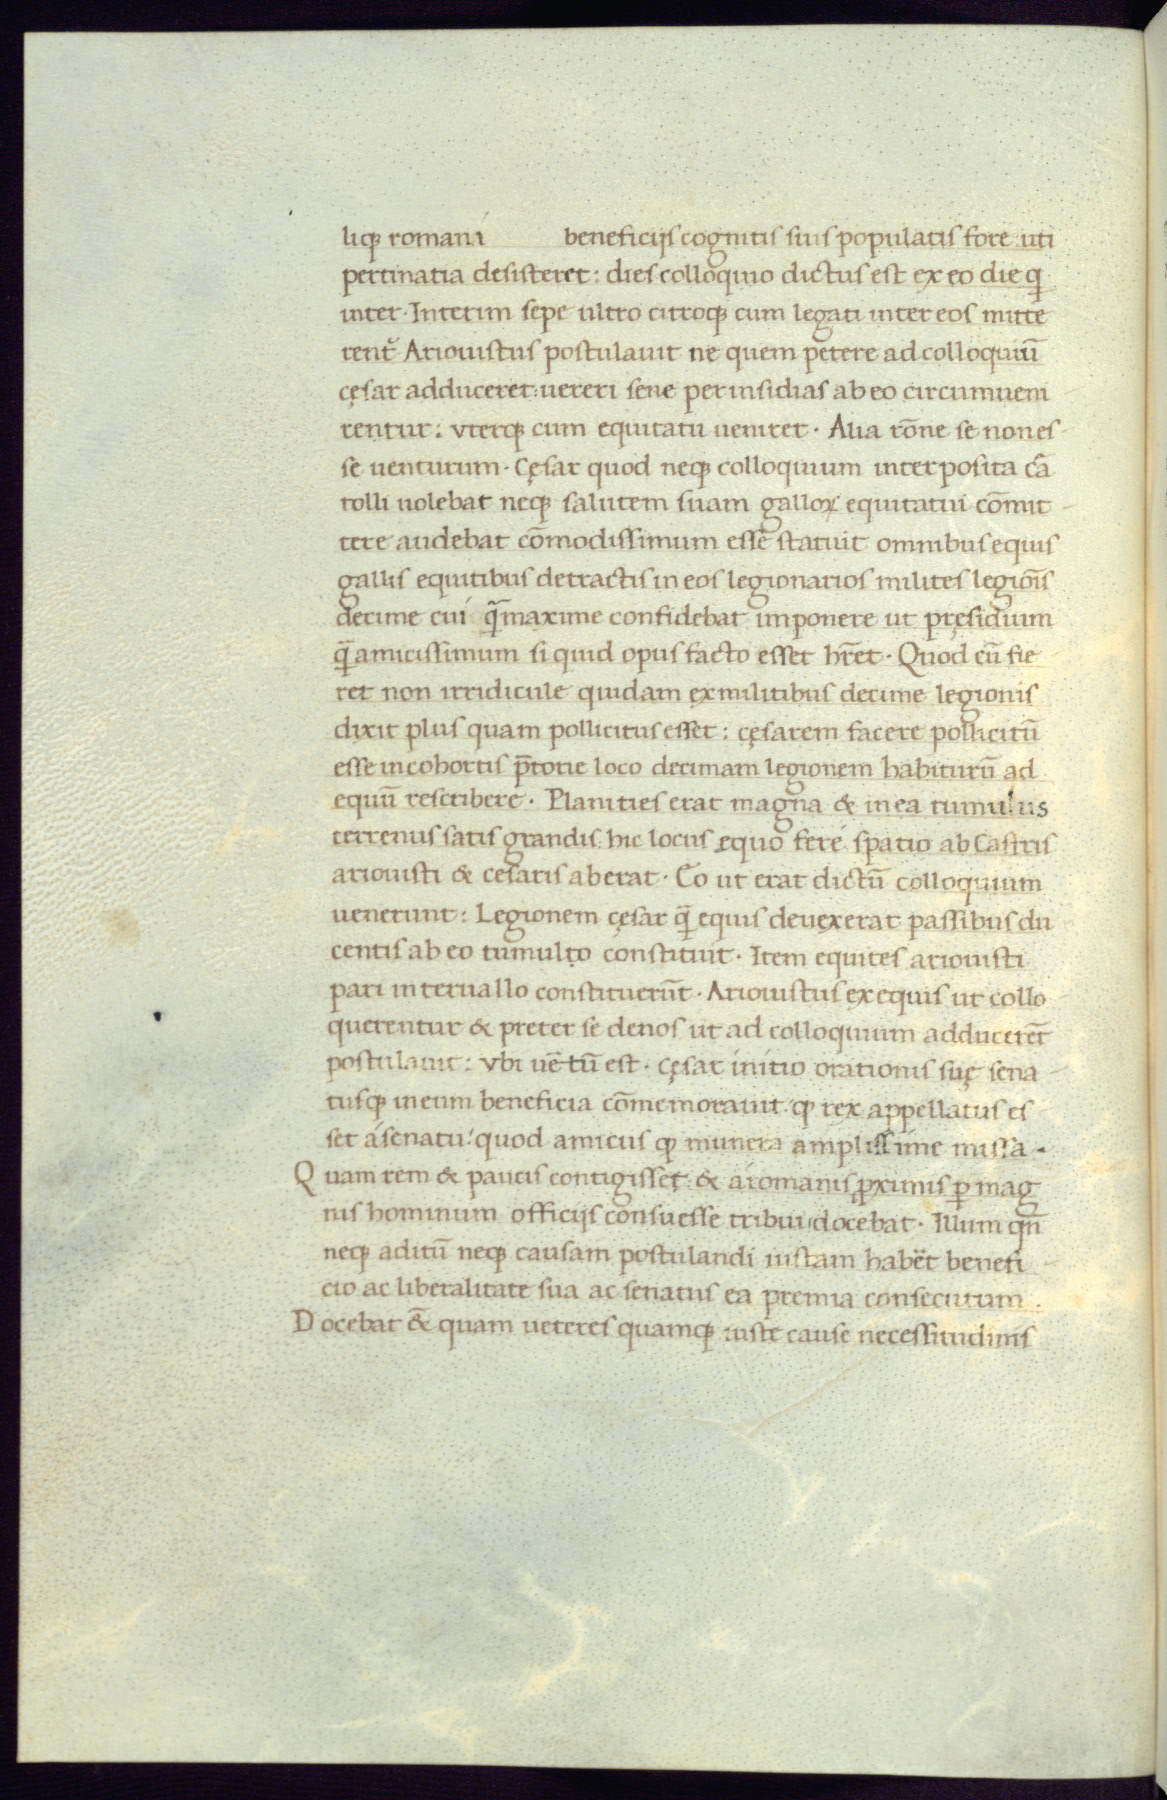 liq romani beneficijs cognitis suis populatis fore uti
pertinatia desisteret : dies colloquio dictus est ex eo die q̄
intet · Interim sepe ultro citroq cum legati inter eos mitte
rent᷑ Ariouistus postulauit ne quem petere ad colloquiū
cęsar adduceret : uereri sene per insidias ab eo circumueni
rentur : vterq cum equitatu ueniret · Alia rōne se non es
se uenturum · Cęsar quod neq colloquium interposita cā
tolli uolebat neq salutem suam galloꝝ equitatui cōmit
tere audebat cōmodissimum esse statuit omnibus equis
gallis equitibus detractis in eos legionarios milites legiōis
decime cui q̄maxime confidebat imponere ut pręsidium
q̄ amicissimum si quid opus facto esset hr̄et · Quod cū fie
ret non irridicule quidam ex militibus decime legionis
dixit plus quam pollicitus esset : cęsarem facere pollicitū
esse in cohortis p̄torie loco decimam legionem habiturū ad
equū rescribere · Planities erat magna & in ea tumulus
terrenus satis grandis hic locus ęquo fere spatio ab Castris
ariouisti & cesaris aberat · Eo ut erat dictū colloquium
uenerunt : Legionem cęsar q̄ equis deuexerat passibus du
centis ab eo tumulto constituit · Item equites ariouisti
pari interuallo constituerūt · Ariouistus ex equis ut collo
querentur & preter se denos ut ad colloquium adducerēt
postulauit : vbi uētū est · cęsar initio orationis suę sena
tusq in eum beneficia cōmemorauit · ꝙ rex appellatus es
set a senatu : quod amicus ꝙ munera amplissime missa ·
Quam rem & paucis contigisset : & a romanis ꝓximis ꝑ mag
nis hominum officijs consuesse tribui docebat · Illum qn̄
neq aditū neq causam postulandi iustam habēt benefi
cio ac liberalitate sua ac senatus ea premia consecutum .
Docebat &̄ quam ueteres quamq iuste cause necessitudinis